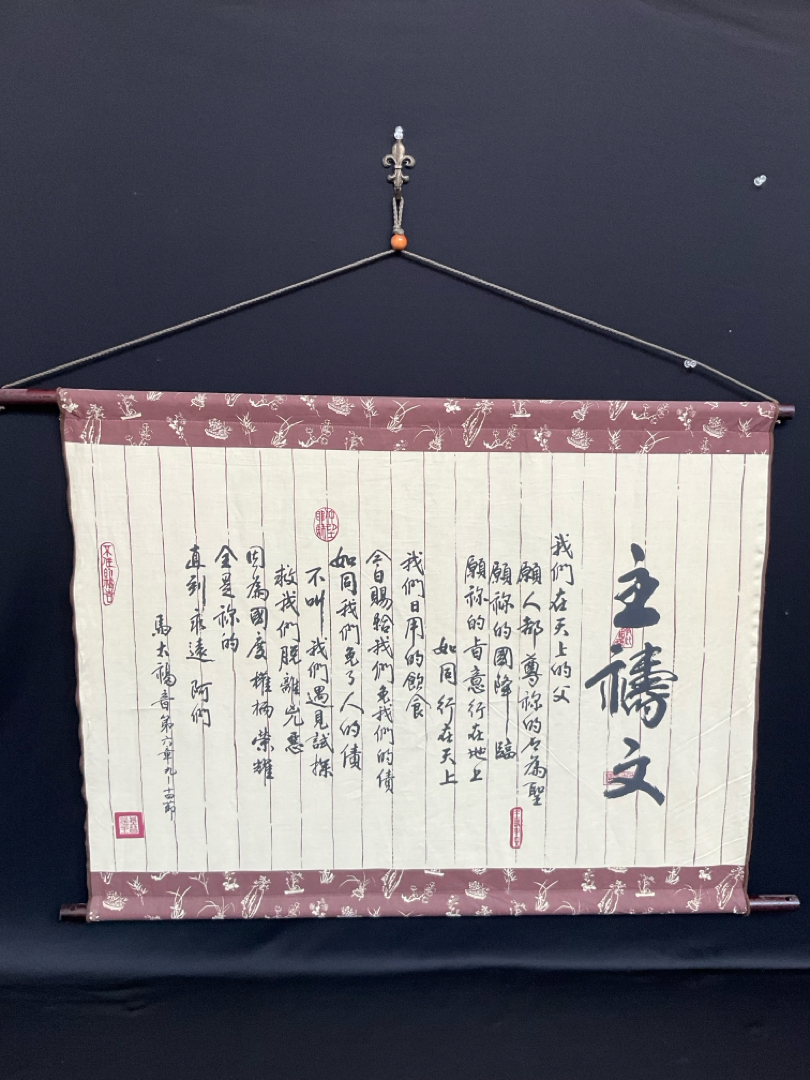 主禱文
我們在天上的父
願人都尊祢的名為聖
願祢的國降臨
願祢的旨意行在地上
如同行在天上
我們日用的飲食
今日賜給我們免我們的債
如同我們免了人的債
不叫我們遇見試探
救我們脫離兇惡
因為國度權柄榮耀
全是祢的
直到永遠 阿們
馬太福音第六章九~十三節